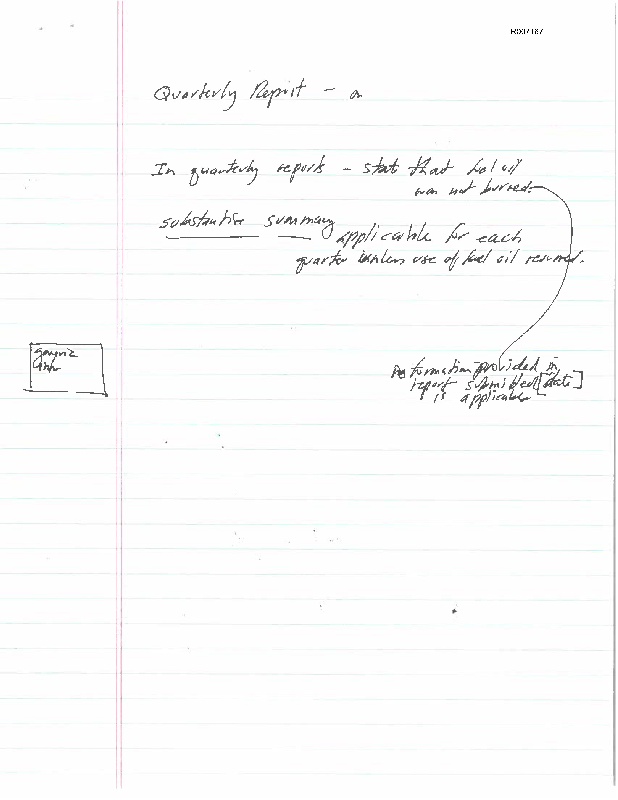 R007187
Quarterly Report - a
In quarterly reports - state that fuel oil
was not burned.
substantive summary
applicable for each
quarter unless use of fuel oil resumed.
information provided in
report submitted [date]
is applicable